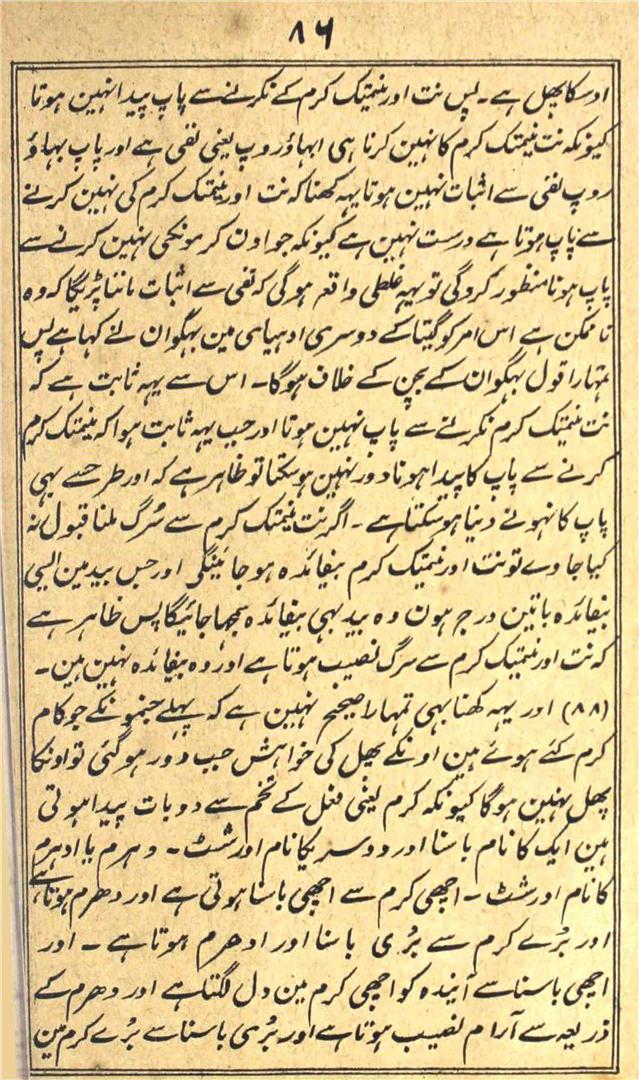 ۸۶
اوسکا پھل ہے۔ پس نت اور نمیتک کرم کے نکرنے سے پاپ پیدا نہین ہوتا
کیونکہ نت نیمتک کرم کا نہین کرنا ہی ابہاؤ روپ یعنی نفی ہے اور پاپ بہاؤ
روپ نفی سے اثبات نہین ہوتا یہہ کھنا کہ نت اور نیمتک کرم کی نہین کرنے
سے پاپ ہوتا ہے درست نہین ہے کیونکہ جو اون کرمونکی نہین کرنے سے
پاپ ہونا منظور کروگی تو یہہ غلطی واقع ہوگی کہ نفی سے اثبات ماننا پڑیگا کہ وہ
نا ممکن ہے اس امر کو گیتا کے دوسری ادہیای مین بہگوان نے کہا ہے پس
تمہارا قول بہگوان کے بچن کے خلاف ہوگا۔ اس سے یہہ ثابت ہے کہ
نت نمیتک کرم نکرنے سے پاپ نہین ہوتا اور جب یہہ ثابت ہوا کہ نیمتک کرم
کرنے سے پاپ کا پیدا ہونا دور نہین ہوسکتا تو ظاہر ہے کہ اور طرحسے بہی
پاپ کا نہونے دینا ہوسکتا ہے۔ اگر نت نیمتک کرم سے سُرگ ملنا قبول نہ
کیا جاوے تو نت اور نمیتک کرم بیفائدہ ہو جائینگی اور جس بید مین ایسی
بیفائدہ باتین درج ہون وہ بید بہی بیفائدہ سمجھا جائیگا پس ظاہر ہے
کہ نت اور نمیتک کرم سے سرگ نصیب ہوتا ہے اور وہ بیفائدہ نہین ہین۔
(۸۸) اور یہہ کھنا بہی تمہارا صحیح نہین ہے کہ پہلے جنمونکے جو کام
کرم کئے ہوئے ہین اونکے پھل کی خواہش جب دور ہوگئی تو اونکا
پھل نہین ہوگا کیونکہ کرم یعنی فعل کے تخم سے دو بات پیدا ہوتی
ہین ایک کا نام باسنا اور دوسریکا نام اورشٹ۔ دہرم یا ادہرم
کا نام اورشٹ۔ اچھی کرم سے اچھی باسنا ہوتی ہے اور دھرم ہوتا ہے
اور بُرے کرم سے بُری باسنا اور ادھرم ہوتا ہے۔ اور
اچھی باسنا سے آیندہ کو اچھی کرم مین دل لگتا ہے اور دھرم کے
ذریعہ سے آرام نصیب ہوتا ہے اور بُری باسنا سے بُرے کرم مین